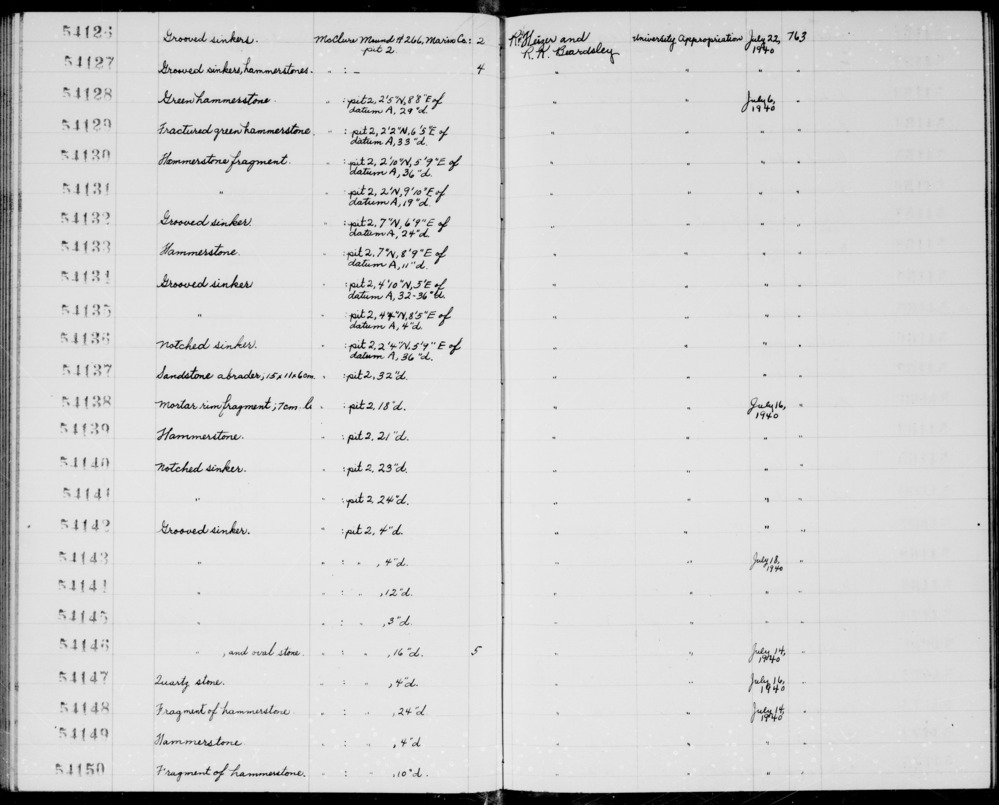 54126 Grooved sinkers. McClure Mound #266, Marin Co: 2 R. Heizer and University Appropriation July 22, 763
pit 2 R. K. Beardsley 1940
54127 Grooved sinkers, hammerstones. " : – 4 " " " "
54128 Green hammerstone " : pit 2, 2'5"N, 8'8"E of " " July 6, "
datum A, 29"d. 1940
54129 Fractured green hammerstone " : pit 2, 2'2"N, 6'5"E of " " " "
datum A, 33"d.
54130 Hammerstone fragment. " : pit 2, 2'10"N, 5'9"E of " " " "
datum A, 36"d.
54131 " " : pit 2, 2'N, 9'10"E of " " " "
datum A, 19"d.
54132 Grooved sinker " : pit 2, 7"N, 6'9"E of " " " "
datum A, 24"d.
54133 Hammerstone. " : pit 2, 7"N, 8'9"E of " " " "
datum A, 11"d.
54134 Grooved sinker " : pit 2, 4'10"N, 5'E of " " " "
datum A, 32-36"d.
54135 " " : pit 2, 44"N, 8'5"E of " " " "
datum A, 4"d.
54136 Notched sinker. " : pit 2, 2'4"N, 5'9"E of " " " "
datum A, 36"d.
54137 Sandstone abrader; 15x11x6cm. " : pit 2, 32"d. " " " "
54138 Mortar rim fragment; 7cm. l. " : pit 2, 18"d. " " July 16, "
1940
54139 Hammerstone. " : pit 2, 21"d. " " " "
54140 Notched sinker. " : pit 2, 23"d. " " " "
54141 " " : pit 2 24"d. " " " "
54142 Grooved sinker. " : pit 2, 4"d. " " " "
54143 " " : " , 4"d. " " July 18, "
1940
54144 " " : " , 12"d. " " " "
54145 " " : " , 3"d. " " " "
54146 " , and oval stone. " : " , 16"d. 5 " " July 14, "
1940
54147 Quartz stone. " : " , 4"d. " " July 16, "
1940
54148 Fragment of hammerstone " : " , 24"d " " July 14, "
1940
54149 Hammerstone " : " , 4"d " " " "
54150 Fragment of hammerstone. " : " , 10"d. " " " "